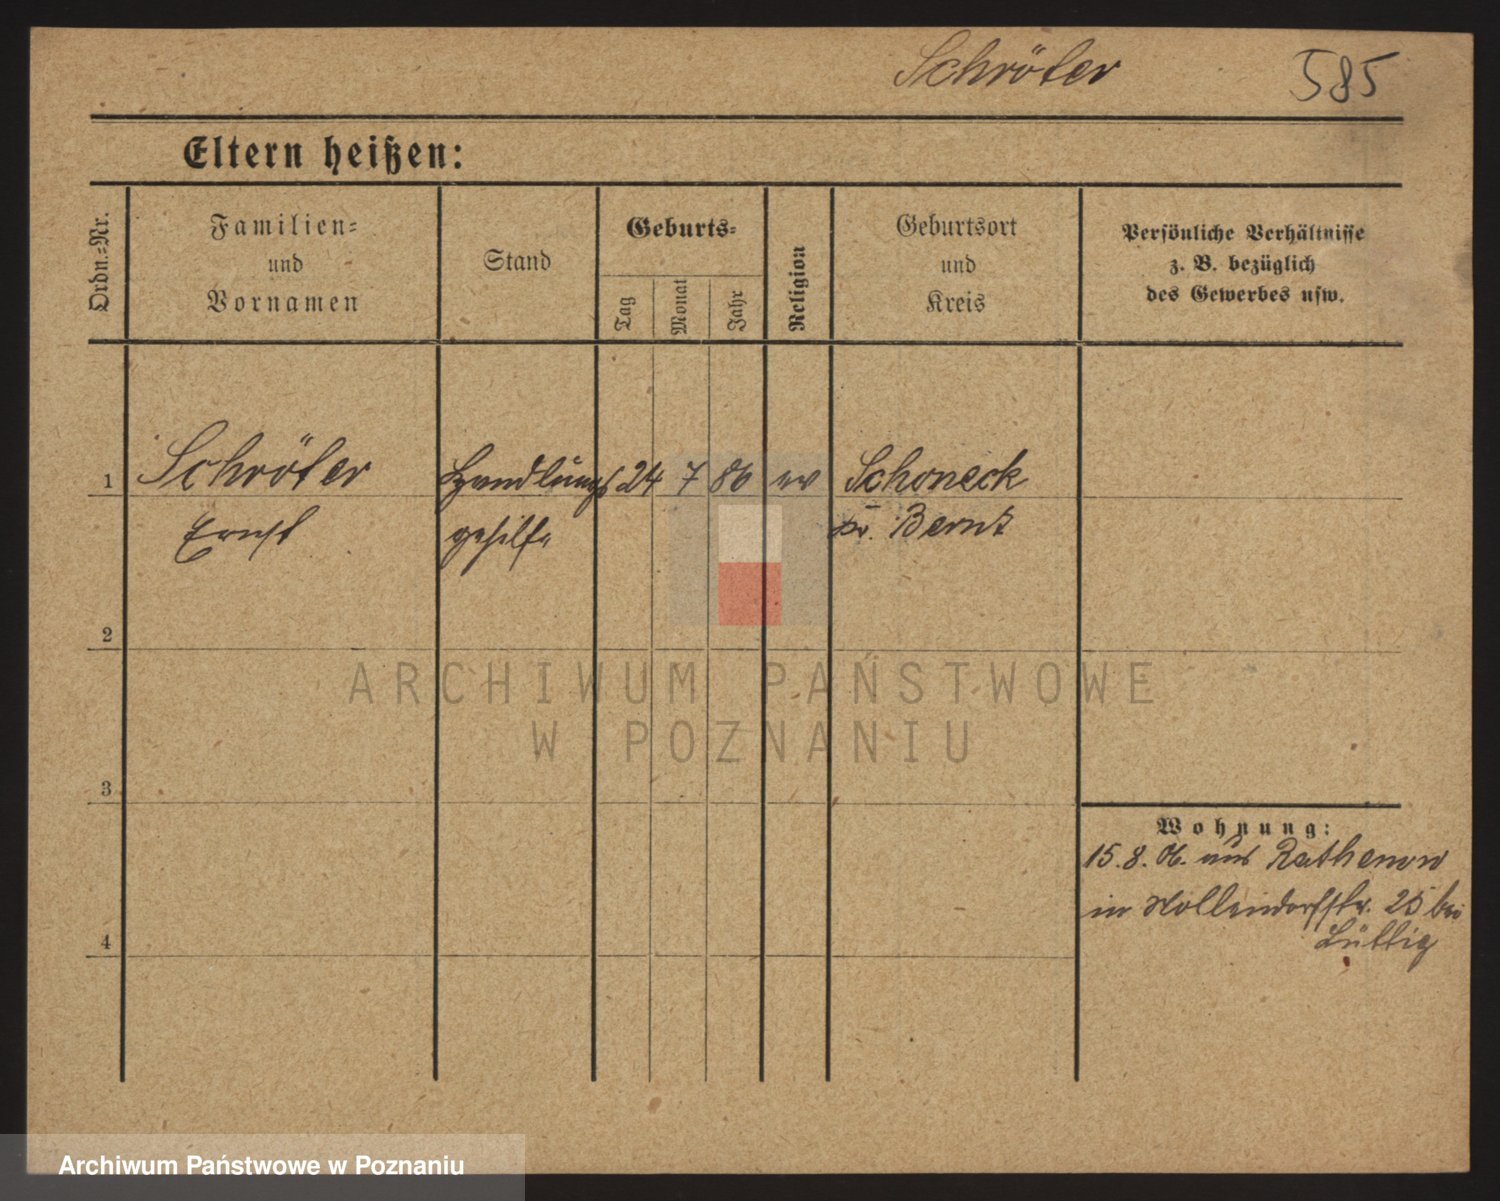 Schröter 585
Eltern heißen:
Ordn.-Nr.
Familien-
und
Vornamen
Stand
Geburts-
Tag
Monat
Jahr
Religion
Geburtsort
und
Kreis
Persönliche Verhältnisse
z. B. bezüglich
des Gewerbes usw.
1 Schröter Handlungs 24 7 86 ev Schoneck
Ernst gehilfe Kr. Bernt
2
ARCHIWUM PAŃSTWOWE
W POZNANIU
3
Wohnung:
15. 8. 06. aus Rathenow
in Nollendorfstr. 25 bei
Lüttig
4
Archiwum Państwowe w Poznaniu